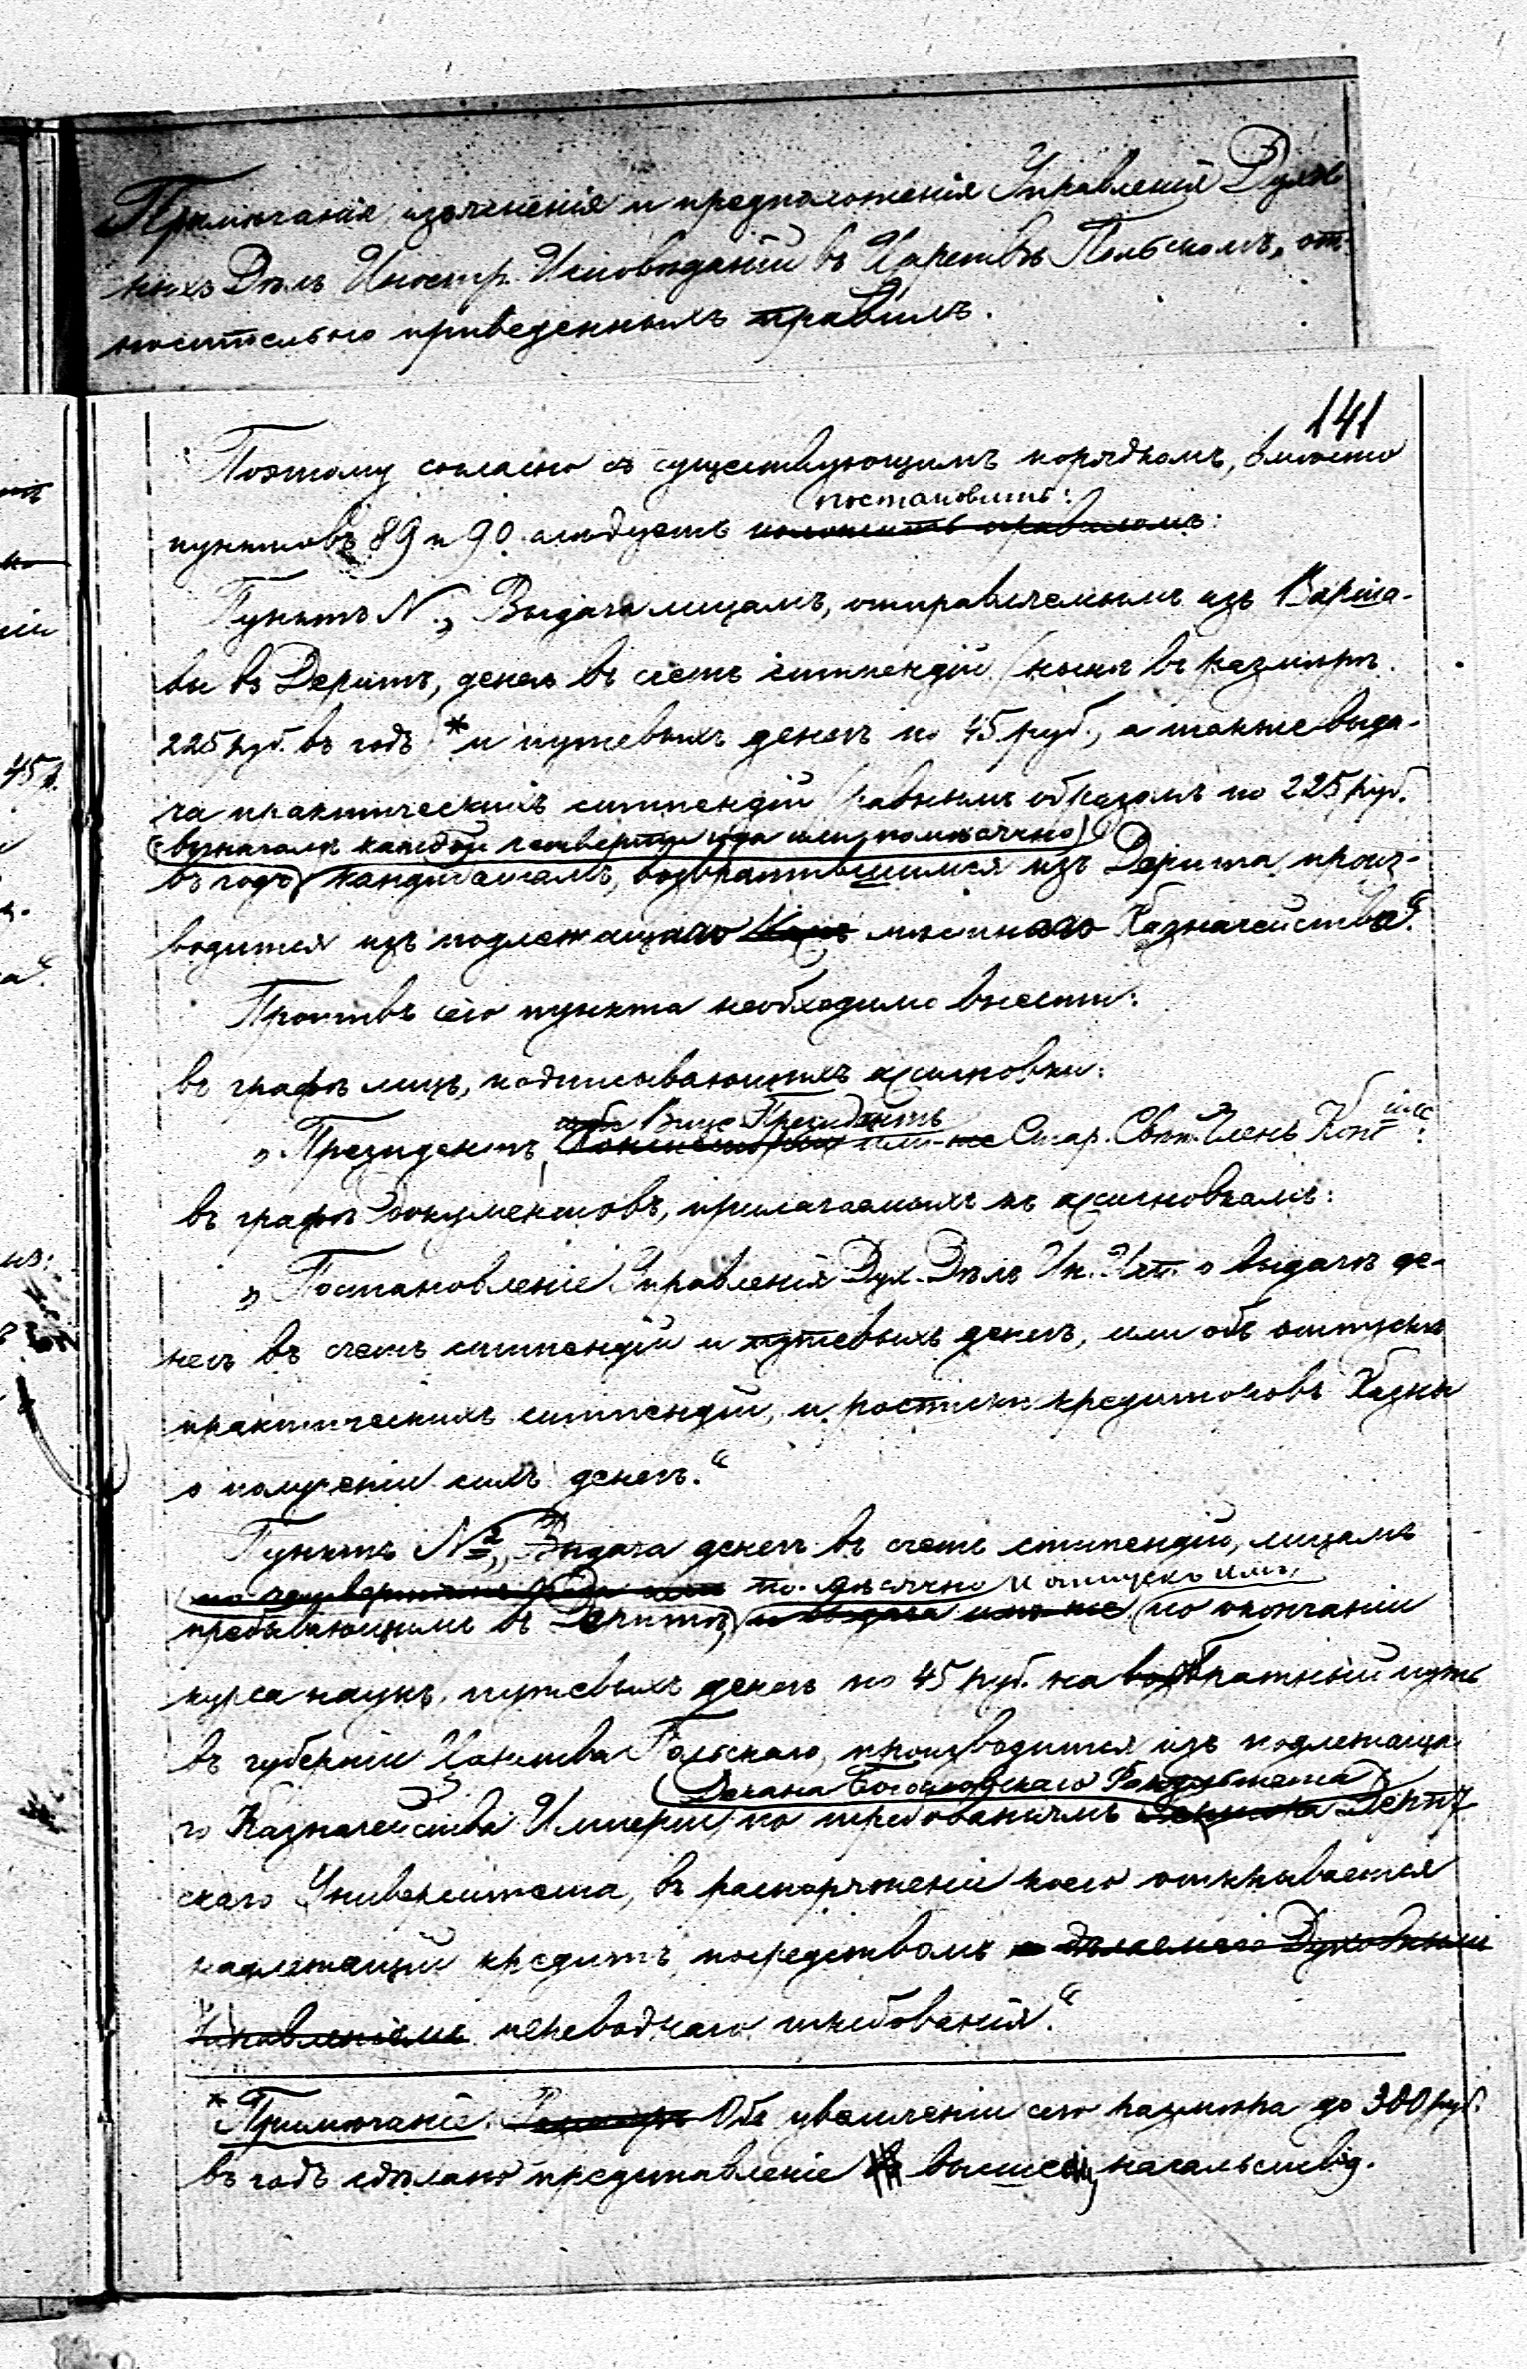 Примѣчанія, изъясненія и предположенія Управленія Духов-
ныхъ Дѣлъ Иностр. Исповѣданій въ Царствѣ Польскомъ, от-
носительно приведенныхъ правилъ.
141
Поэтому согласно съ существующимъ порядкомъ, вмѣсто
постановить:
пунктовъ 89 и 90 слѣдуетъ положить правиломъ:
Пунктъ N „Выдача лицамъ, отправляемымъ изъ Варша-
вы въ Дерптъ, денегъ въ счетъ стипендій (нынѣ въ размѣрѣ
225 руб. въ годъ * и путевыхъ денегъ по 45 руб., а также выда-
ча практическихъ стипендій (равнымъ образомъ по 225 руб.
(въ началѣ каждой четверти года или помѣсячно)
въ годъ) кандидатамъ, возвратившимся изъ Дерпта, произ-
водится изъ подлежащаго мѣстнаго Казначейства“.
Противъ сего пункта необходимо внести:
въ графѣ лицъ, подписывающихъ ассигновки:
либо Вице-Президентъ
„Президентъ, или-же Стар. Свѣт. Членъ Конс
въ графѣ документовъ, прилагаемыхъ къ ассигновкамъ:
„Постановленіе Управленія Дух. Дѣлъ Ин. Исп. о выдачѣ де-
негъ въ счетъ стипендій и путевыхъ денегъ, или объ отпускѣ
практическихъ стипендій, и росписки кредиторовъ Казны
о полученіи симъ денегъ.“
Пунктъ №2, „Выдача денегъ въ счетъ стипендій, лицамъ
по четвертямъ года или по-мѣсячно и отпускъ имъ,
пребывающимъ въ Дерптѣ, и выдача имъ-же по окончаніи
курса наукъ, путевыхъ денегъ по 45 руб. на возвратный путь
въ губерніи Царства Польскаго, производится изъ подлежаща-
Декана Богословскаго Факультета
го Казначейства Имперіи по требованіямъ Дерпт-
скаго Университета, въ распоряженіе коего открывается
надлежащій кредитъ, посредствомъ дѣлаемаго Духовнымъ
Управленіемъ переводнаго требованія.“
* Примѣчаніе. Размѣръ Объ увеличеніи сего размѣра до 300 руб.
въ годъ сдѣлано представленіе высшему начальству.